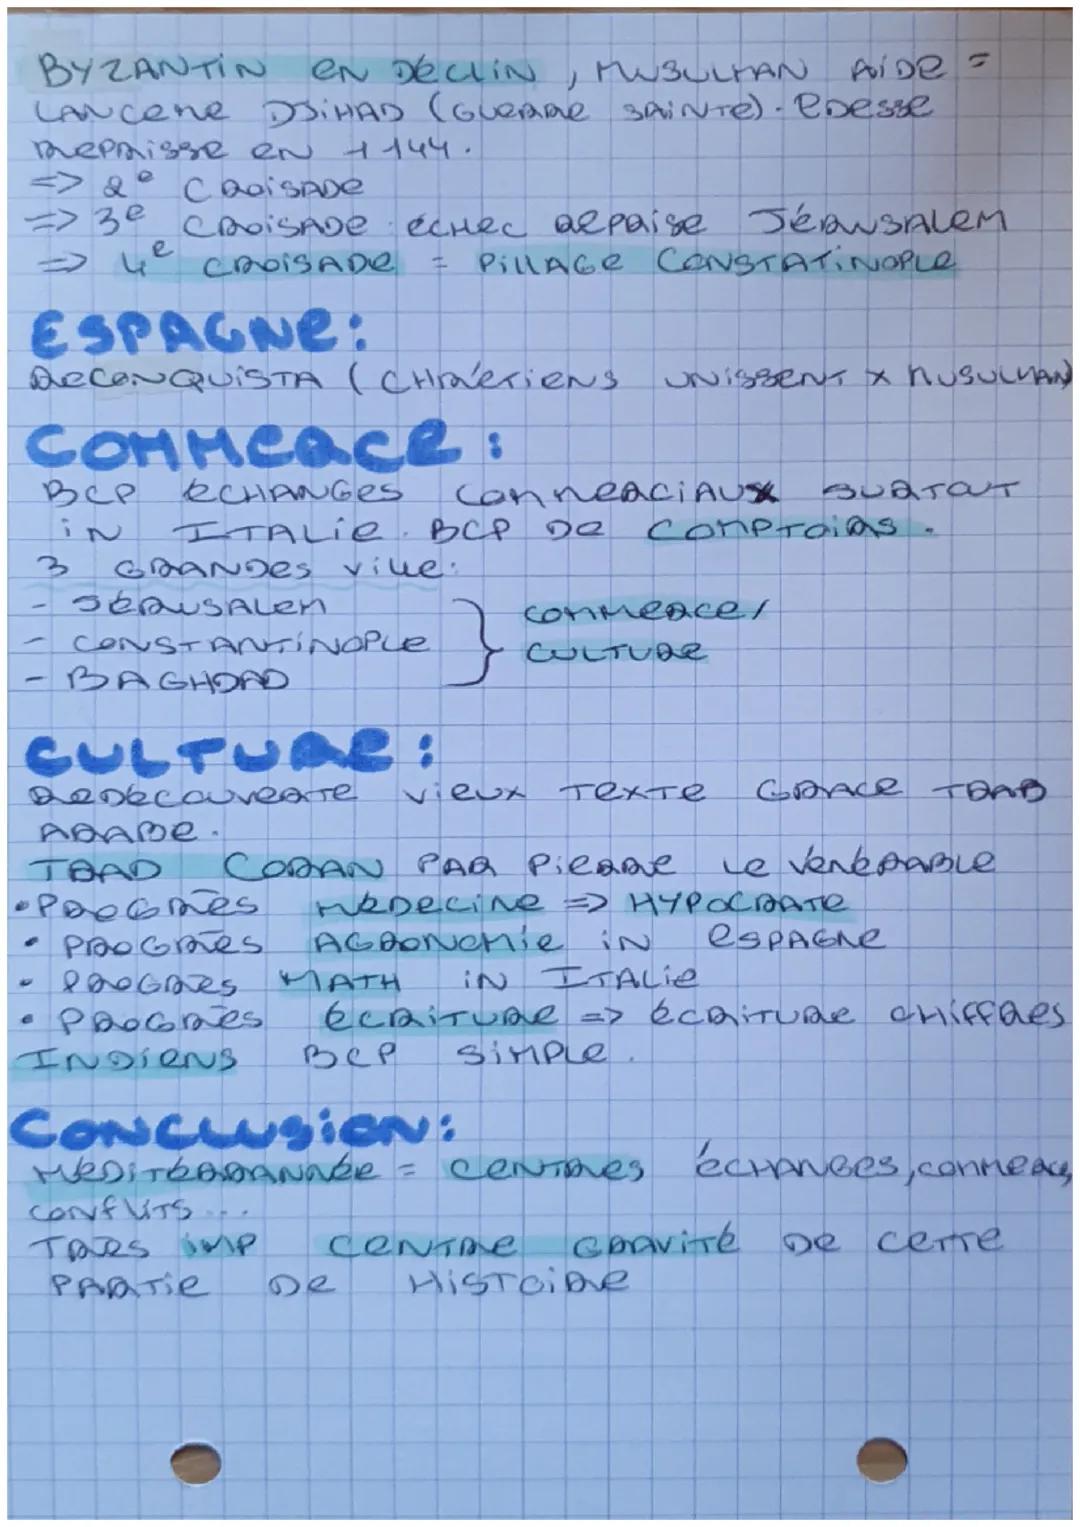 BYZANTIN EN DÉCLIN, MUSULMAN AIDE =
LANCENE DJIHAD (GUERRE SAINTE). EDESSE
REPRISSE EN 1144.
=> 2e CROISADE
=> 3e CROISADE : ÉCHEC REPRISE JÉRUSALEM
=> 4e CROISADE = PILLAGE CONSTATINOPLE
ESPAGNE:
RECONQUISTA (CHRÉTIENS UNISSENT X MUSULMAN)
COMMERCE :
BCP ÉCHANGES COMMERCIAUX SURTOUT
IN ITALIE. BCP DE COMPTOIRS.
3 GRANDES VILLE:
- JÉRUSALEM
- CONSTANTINOPLE
- BAGHDAD
COMMERCE/
CULTURE
CULTURE :
REDÉCOUVERTE VIEUX TEXTE GRACE TRAD
ARABE.
TRAD CORAN PAR PIERRE LE VENÉRABLE
• PROGRÈS MÉDECINE => HYPOCRATE
• PROGRÈS AGRONOMIE IN ESPAGNE
• PROGRES MATH IN ITALIE
• PROGRÈS ÉCRITURE => ÉCRITURE CHIFFRES
INDIENS BCP SIMPLE.
CONCLUSION:
MÉDITÉRRANNÉE = CENTRES ÉCHANGES, COMMERCE,
CONFLITS...
TRES IMP CENTRE GRAVITÉ DE CETTE
PARTIE DE HISTOIRE